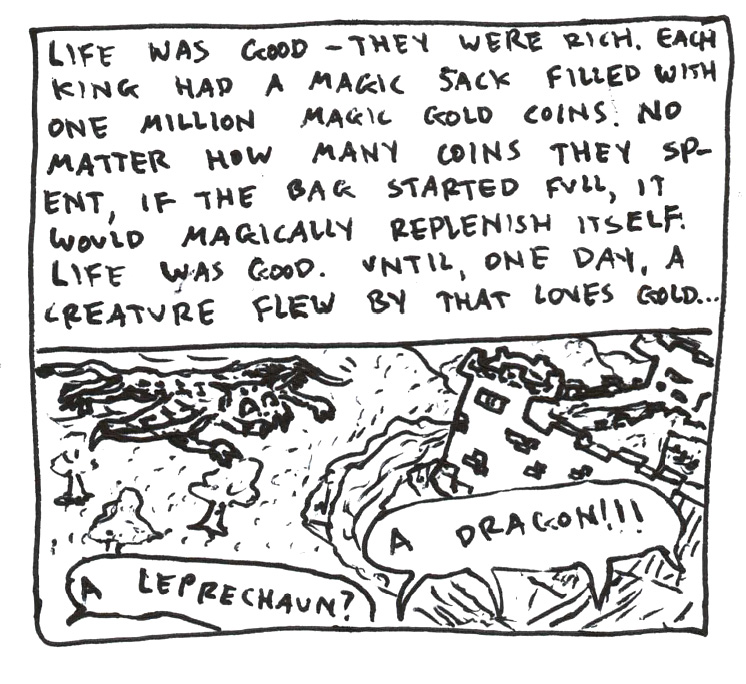 LIFE WAS GOOD - THEY WERE RICH. EACH
KING HAD A MAGIC SACK FILLED WITH
ONE MILLION MAGIC GOLD COINS. NO
MATTER HOW MANY COINS THEY SP-
ENT, IF THE BAG STARTED FULL, IT
WOULD MAGICALLY REPLENISH ITSELF.
LIFE WAS GOOD. UNTIL, ONE DAY, A
CREATURE FLEW BY THAT LOVES GOLD...
A DRAGON!!!
A LEPRECHAUN?